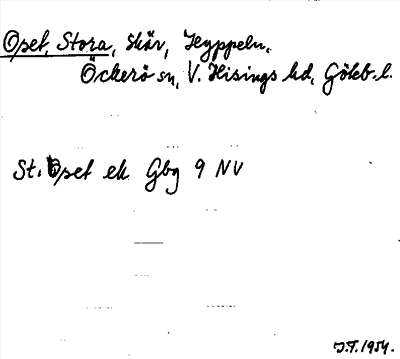 Opet, Stora, skär, Hyppeln.
Öckerö sn, V. Hisings hd, Göteb. l.
St. Opet ek Gbg 9 NV
J.F. 1954.